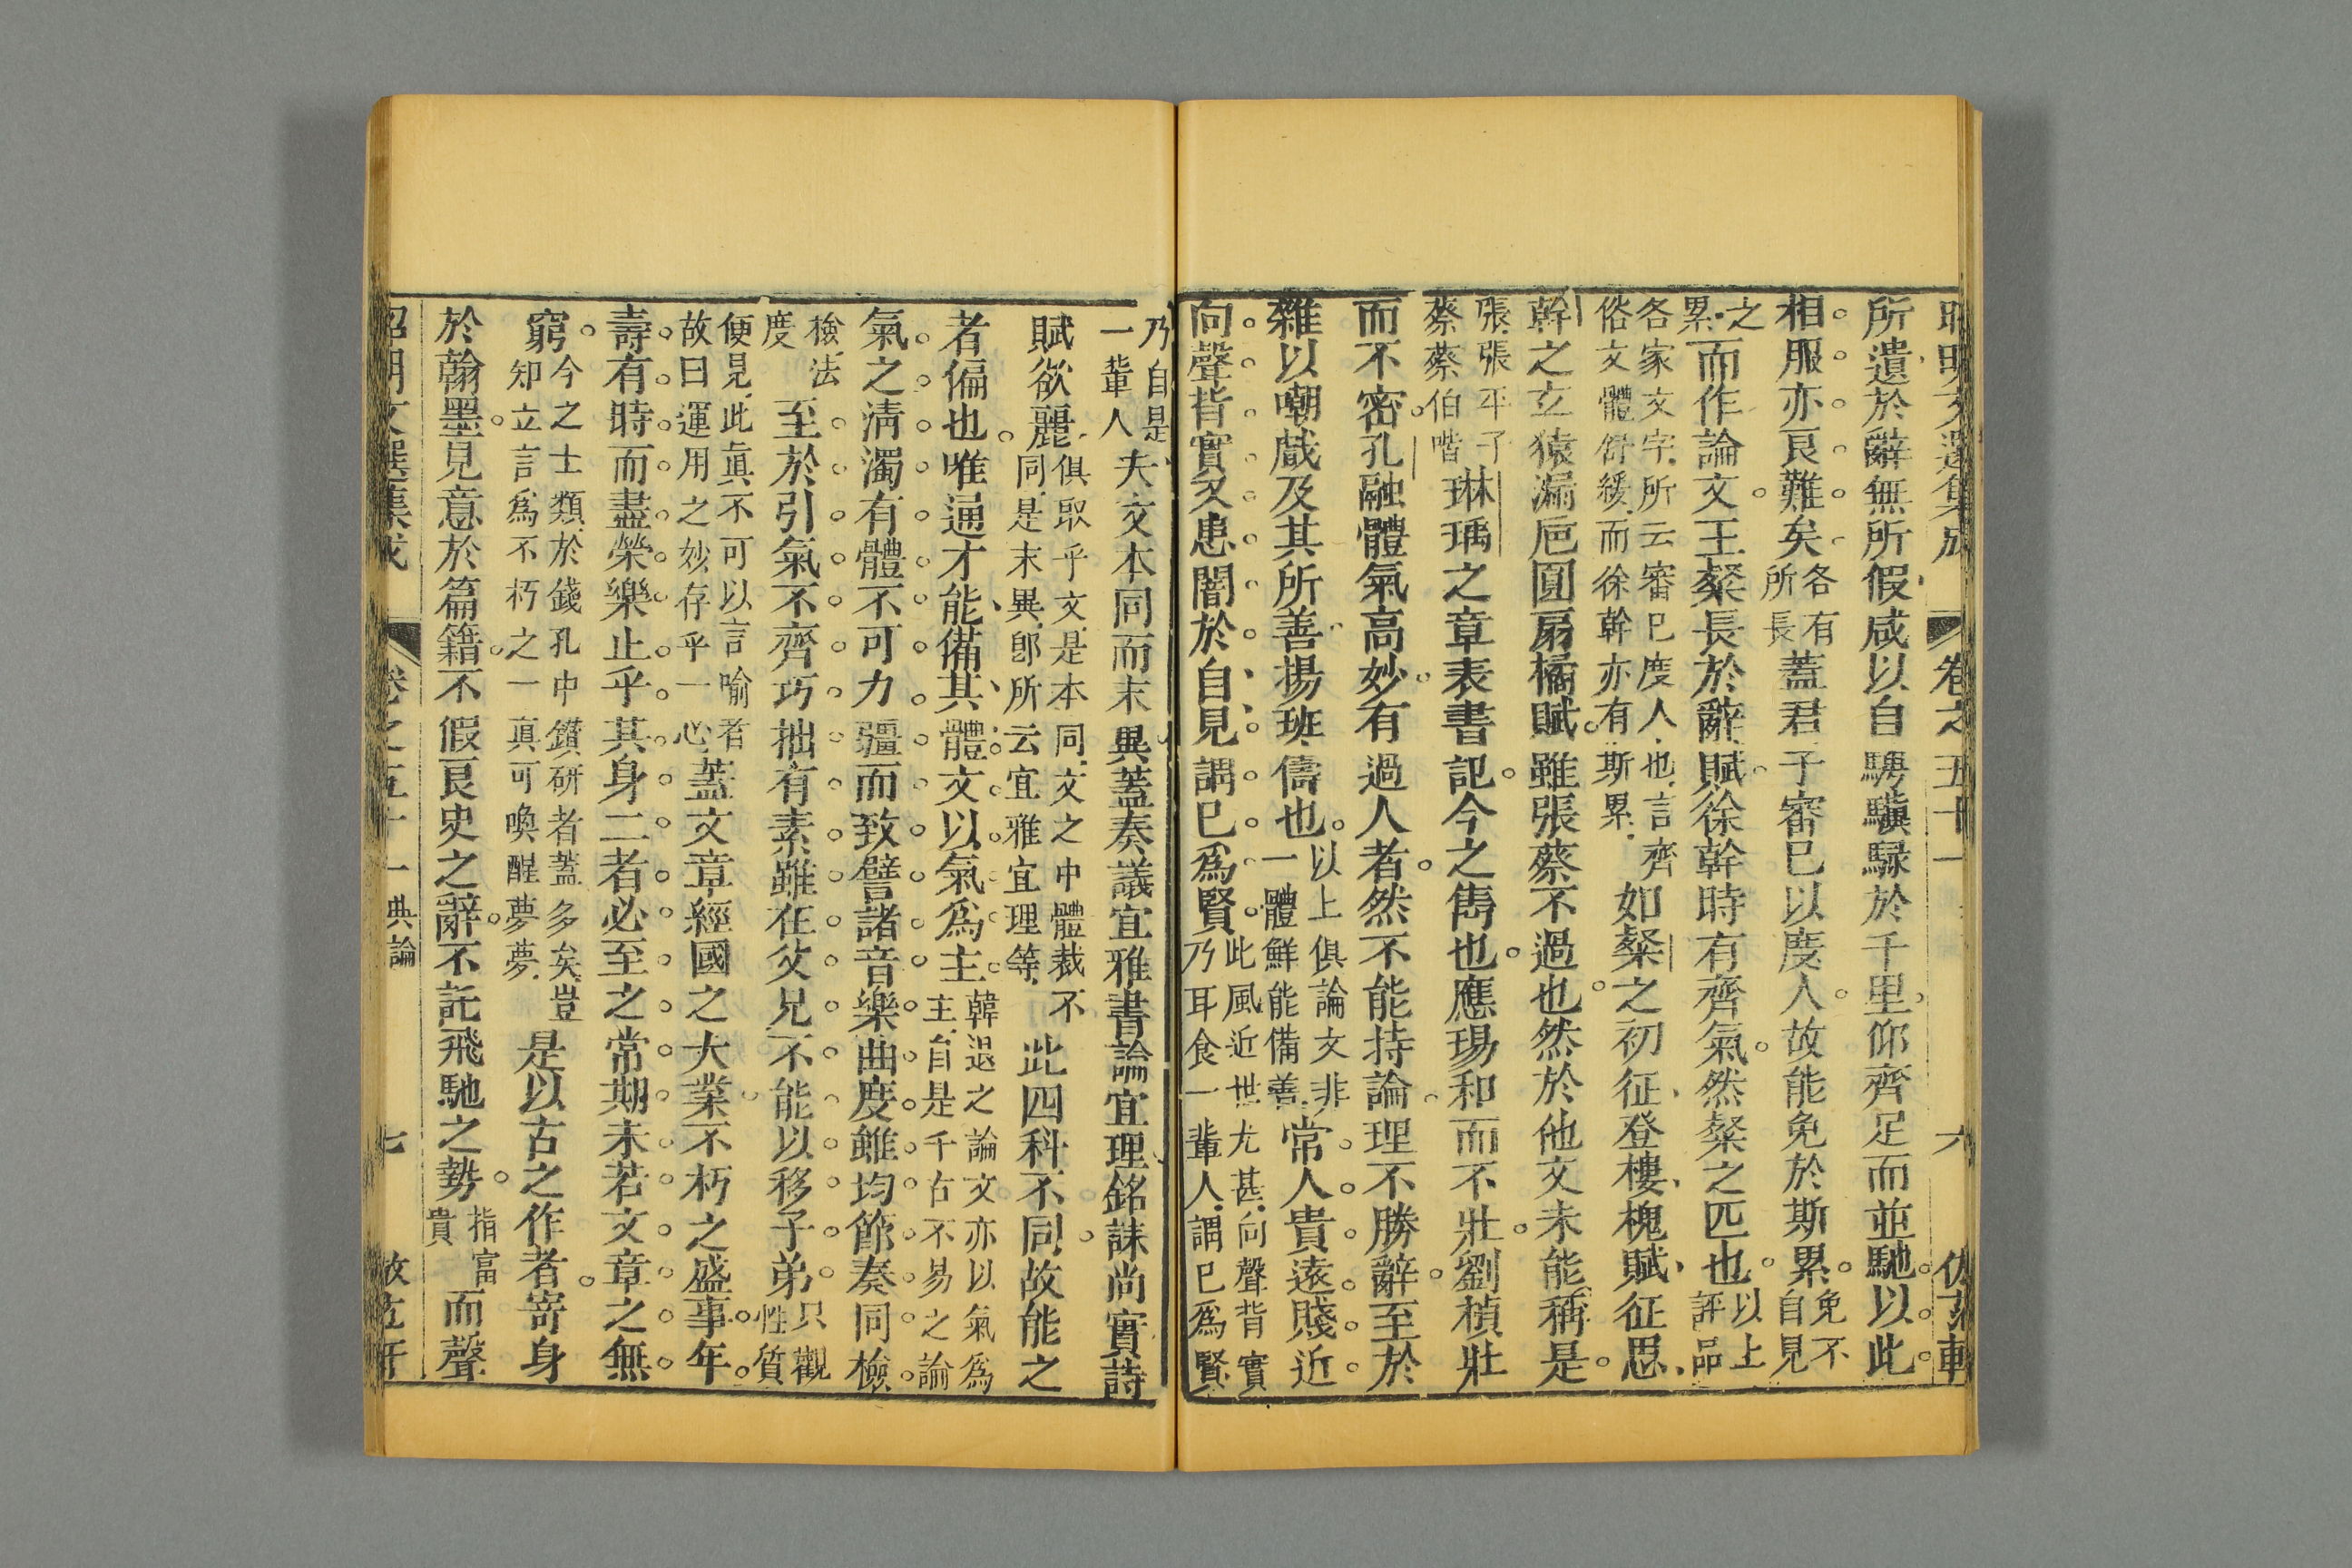 昭明文選集成 卷之五十一 六
所遺於辭無所假咸以自騁驥騄於千里仰齊足而並馳以此
相服亦良難矣各有所長蓋君子審已以度人故能免於斯累免不自見
之累而作論文王粲長於辭賦徐幹時有齊氣然粲之匹也以上評品
各家文字所云審已度人也言齊俗文體舒緩而徐幹亦有斯累如粲之初征登樓槐賦征思
幹之玄猿漏巵圓扇橘賦雖張蔡不過也然於他文未能稱是
張張平子蔡蔡伯喈琳瑀之章表書記今之雋也應瑒和而不壯劉楨壯
而不密孔融體氣高妙有過人者然不能持論理不勝辭至於
雜以嘲戲及其所善揚班儔也以上俱論文非一體鮮能備善常人貴遠賤近
向聲背實又患闇於自見謂已爲賢此風近世尤甚向聲背實乃耳食一輩人謂已爲賢
乃自是一輩人夫文本同而末異蓋奏議宜雅書論宜理銘誄尚實詩
賦欲麗俱取乎文是本同文之中體裁不同是末異卽所云宜雅宜理等此四科不同故能之
者偏也唯通才能備其體文以氣爲主韓退之論文亦以氣爲主自是千古不易之論
氣之淸濁有體不可力彊而致譬諸音樂曲度雖均節奏同檢
檢法度至於引氣不齊巧拙有素雖在父兄不能以移子弟只觀性質
便見此眞不可以言喻者故曰運用之妙存乎一心蓋文章經國之大業不朽之盛事年
壽有時而盡榮樂止乎其身二者必至之常期未若文章之無
窮今之士類於錢孔中鑽硏者蓋多矣豈知立言爲不朽之一眞可喚醒夢夢是以古之作者寄身
於翰墨見意於篇籍不假良史之辭不託飛馳之勢指富貴而聲
昭明文選集成 卷之五十一 典論 七